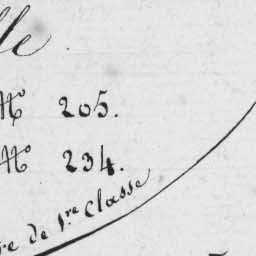 lle
N° 205.
N° 234.
re de 1re Classe